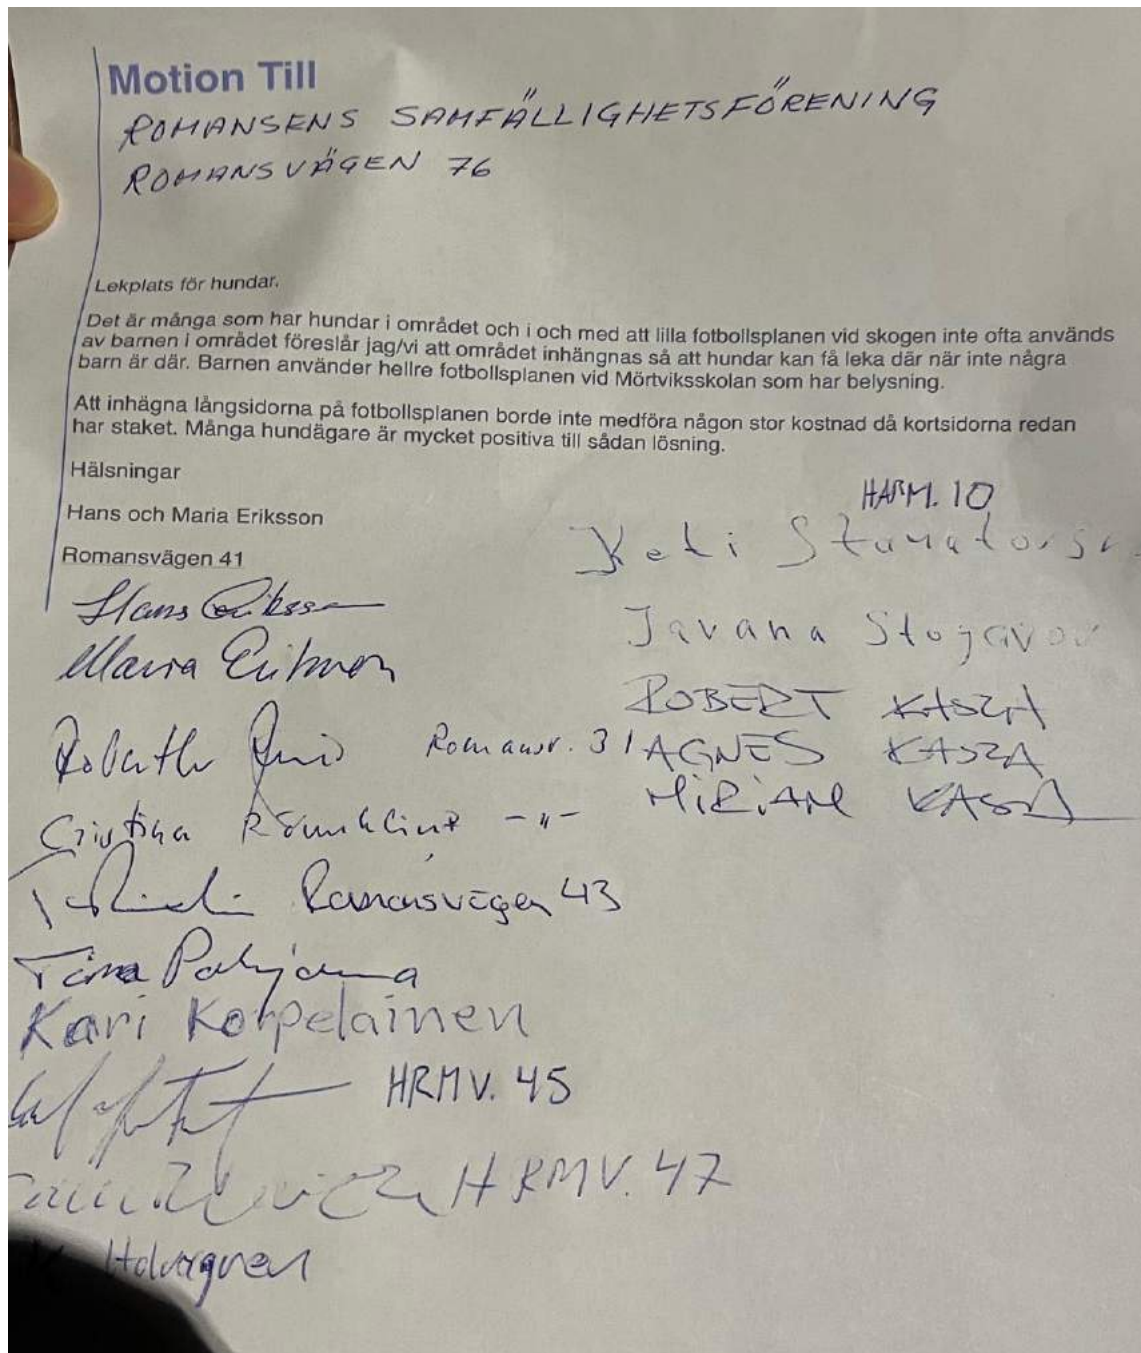 Motion Till
ROMANSENS SAMFÄLLIGHETSFÖRENING
ROMANSVÄGEN 76
Lekplats för hundar.
Det är många som har hundar i området och i och med att lilla fotbollsplanen vid skogen inte ofta används
av barnen i området föreslår jag/vi att området inhängnas så att hundar kan få leka där när inte några
barn är där. Barnen använder hellre fotbollsplanen vid Mörtviksskolan som har belysning.
Att inhägna långsidorna på fotbollsplanen borde inte medföra någon stor kostnad då kortsidorna redan
har staket. Många hundägare är mycket positiva till sådan lösning.
Hälsningar
Hans och Maria Eriksson
Romansvägen 41
Hans Eriksson
Maria Eriksson
Romansv. 31
Cristina -"-
Romansvägen 43
Kari Korpelainen
HRMV. 45
HRMV. 47
HARM. 10
Keti
Javana
ROBERT KASZA
AGNES KASZA
MIRIAM KASZA